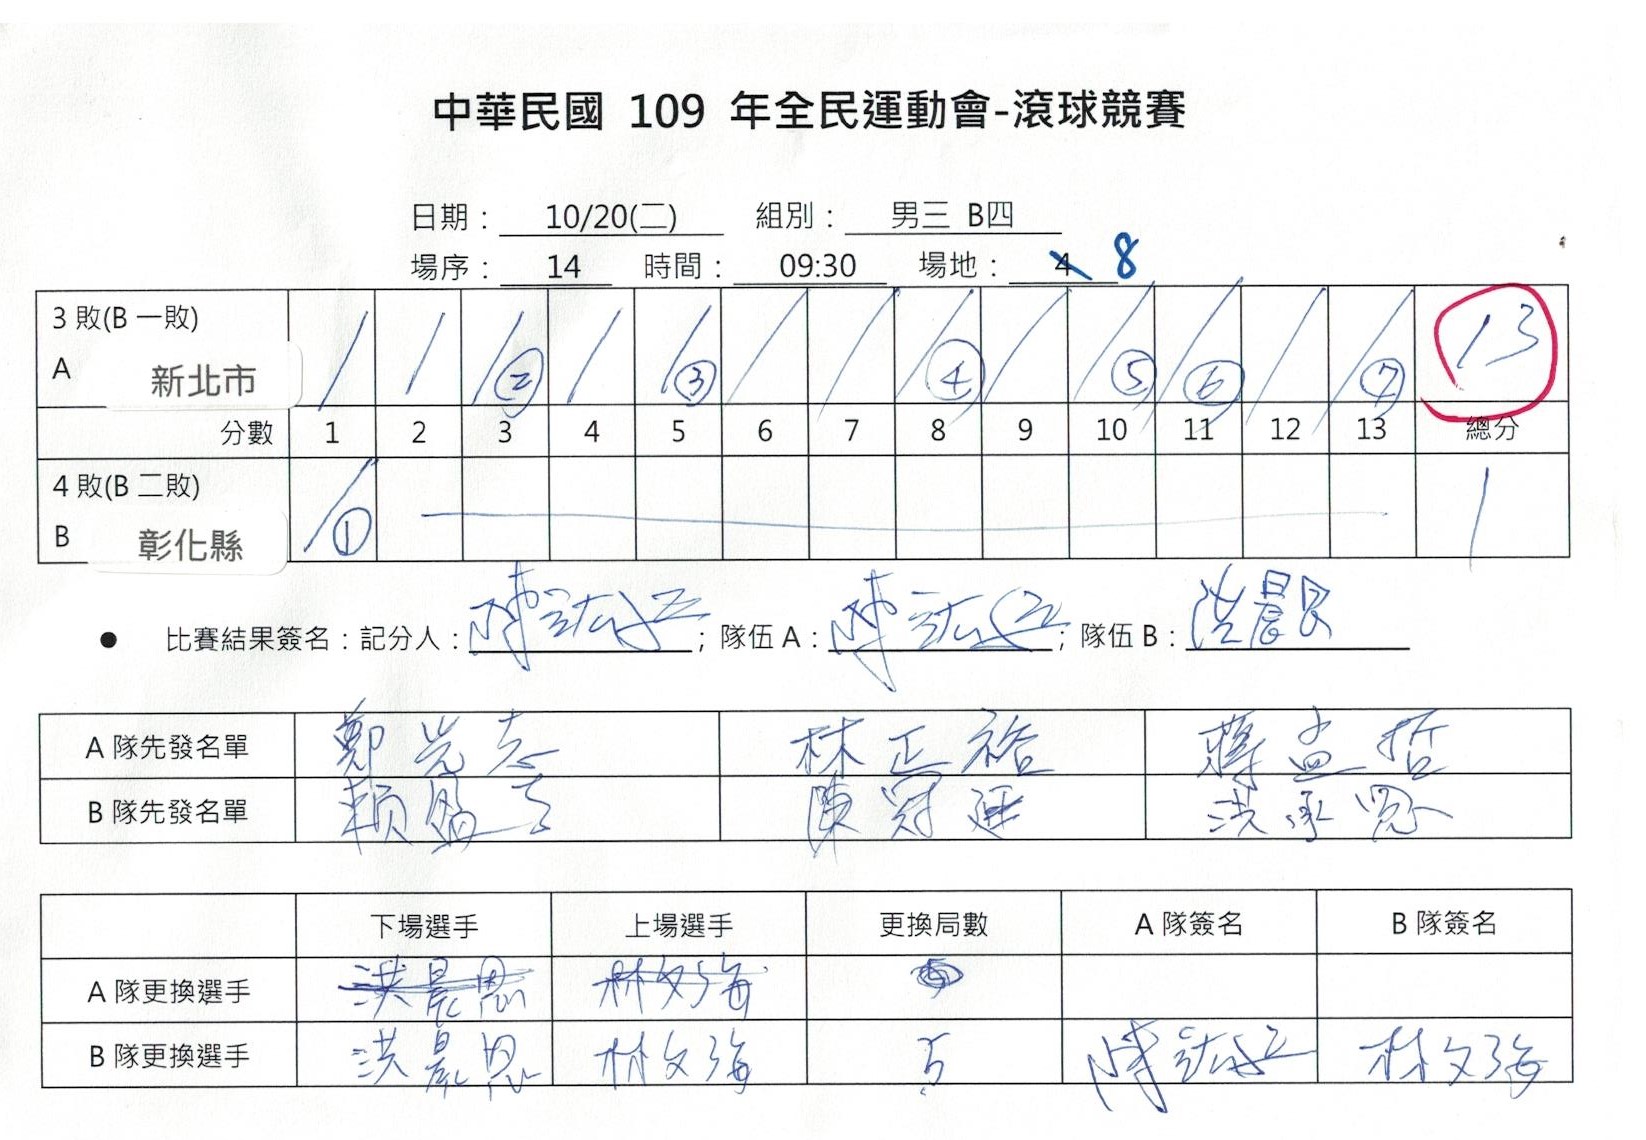 中華民國 109 年全民運動會-滾球競賽
日期： 10/20(二) 組別： 男三 B四
場序： 14 時間： 09:30 場地： 4 8
3 敗(B 一敗)
A 新北市 / / /② / /③ / / /④ / /⑤ /⑥ / /⑦ 13
分數 1 2 3 4 5 6 7 8 9 10 11 12 13 總分
4 敗(B 二敗)
B 彰化縣 /① 1
● 比賽結果簽名：記分人： ；隊伍 A： ；隊伍 B：
A 隊先發名單 鄭光志 林正裕 蔣孟哲
B 隊先發名單 賴 陳冠 洪承
下場選手 上場選手 更換局數 A 隊簽名 B 隊簽名
A 隊更換選手 洪晨恩 林文海 5
B 隊更換選手 洪晨恩 林文海 5 林文海